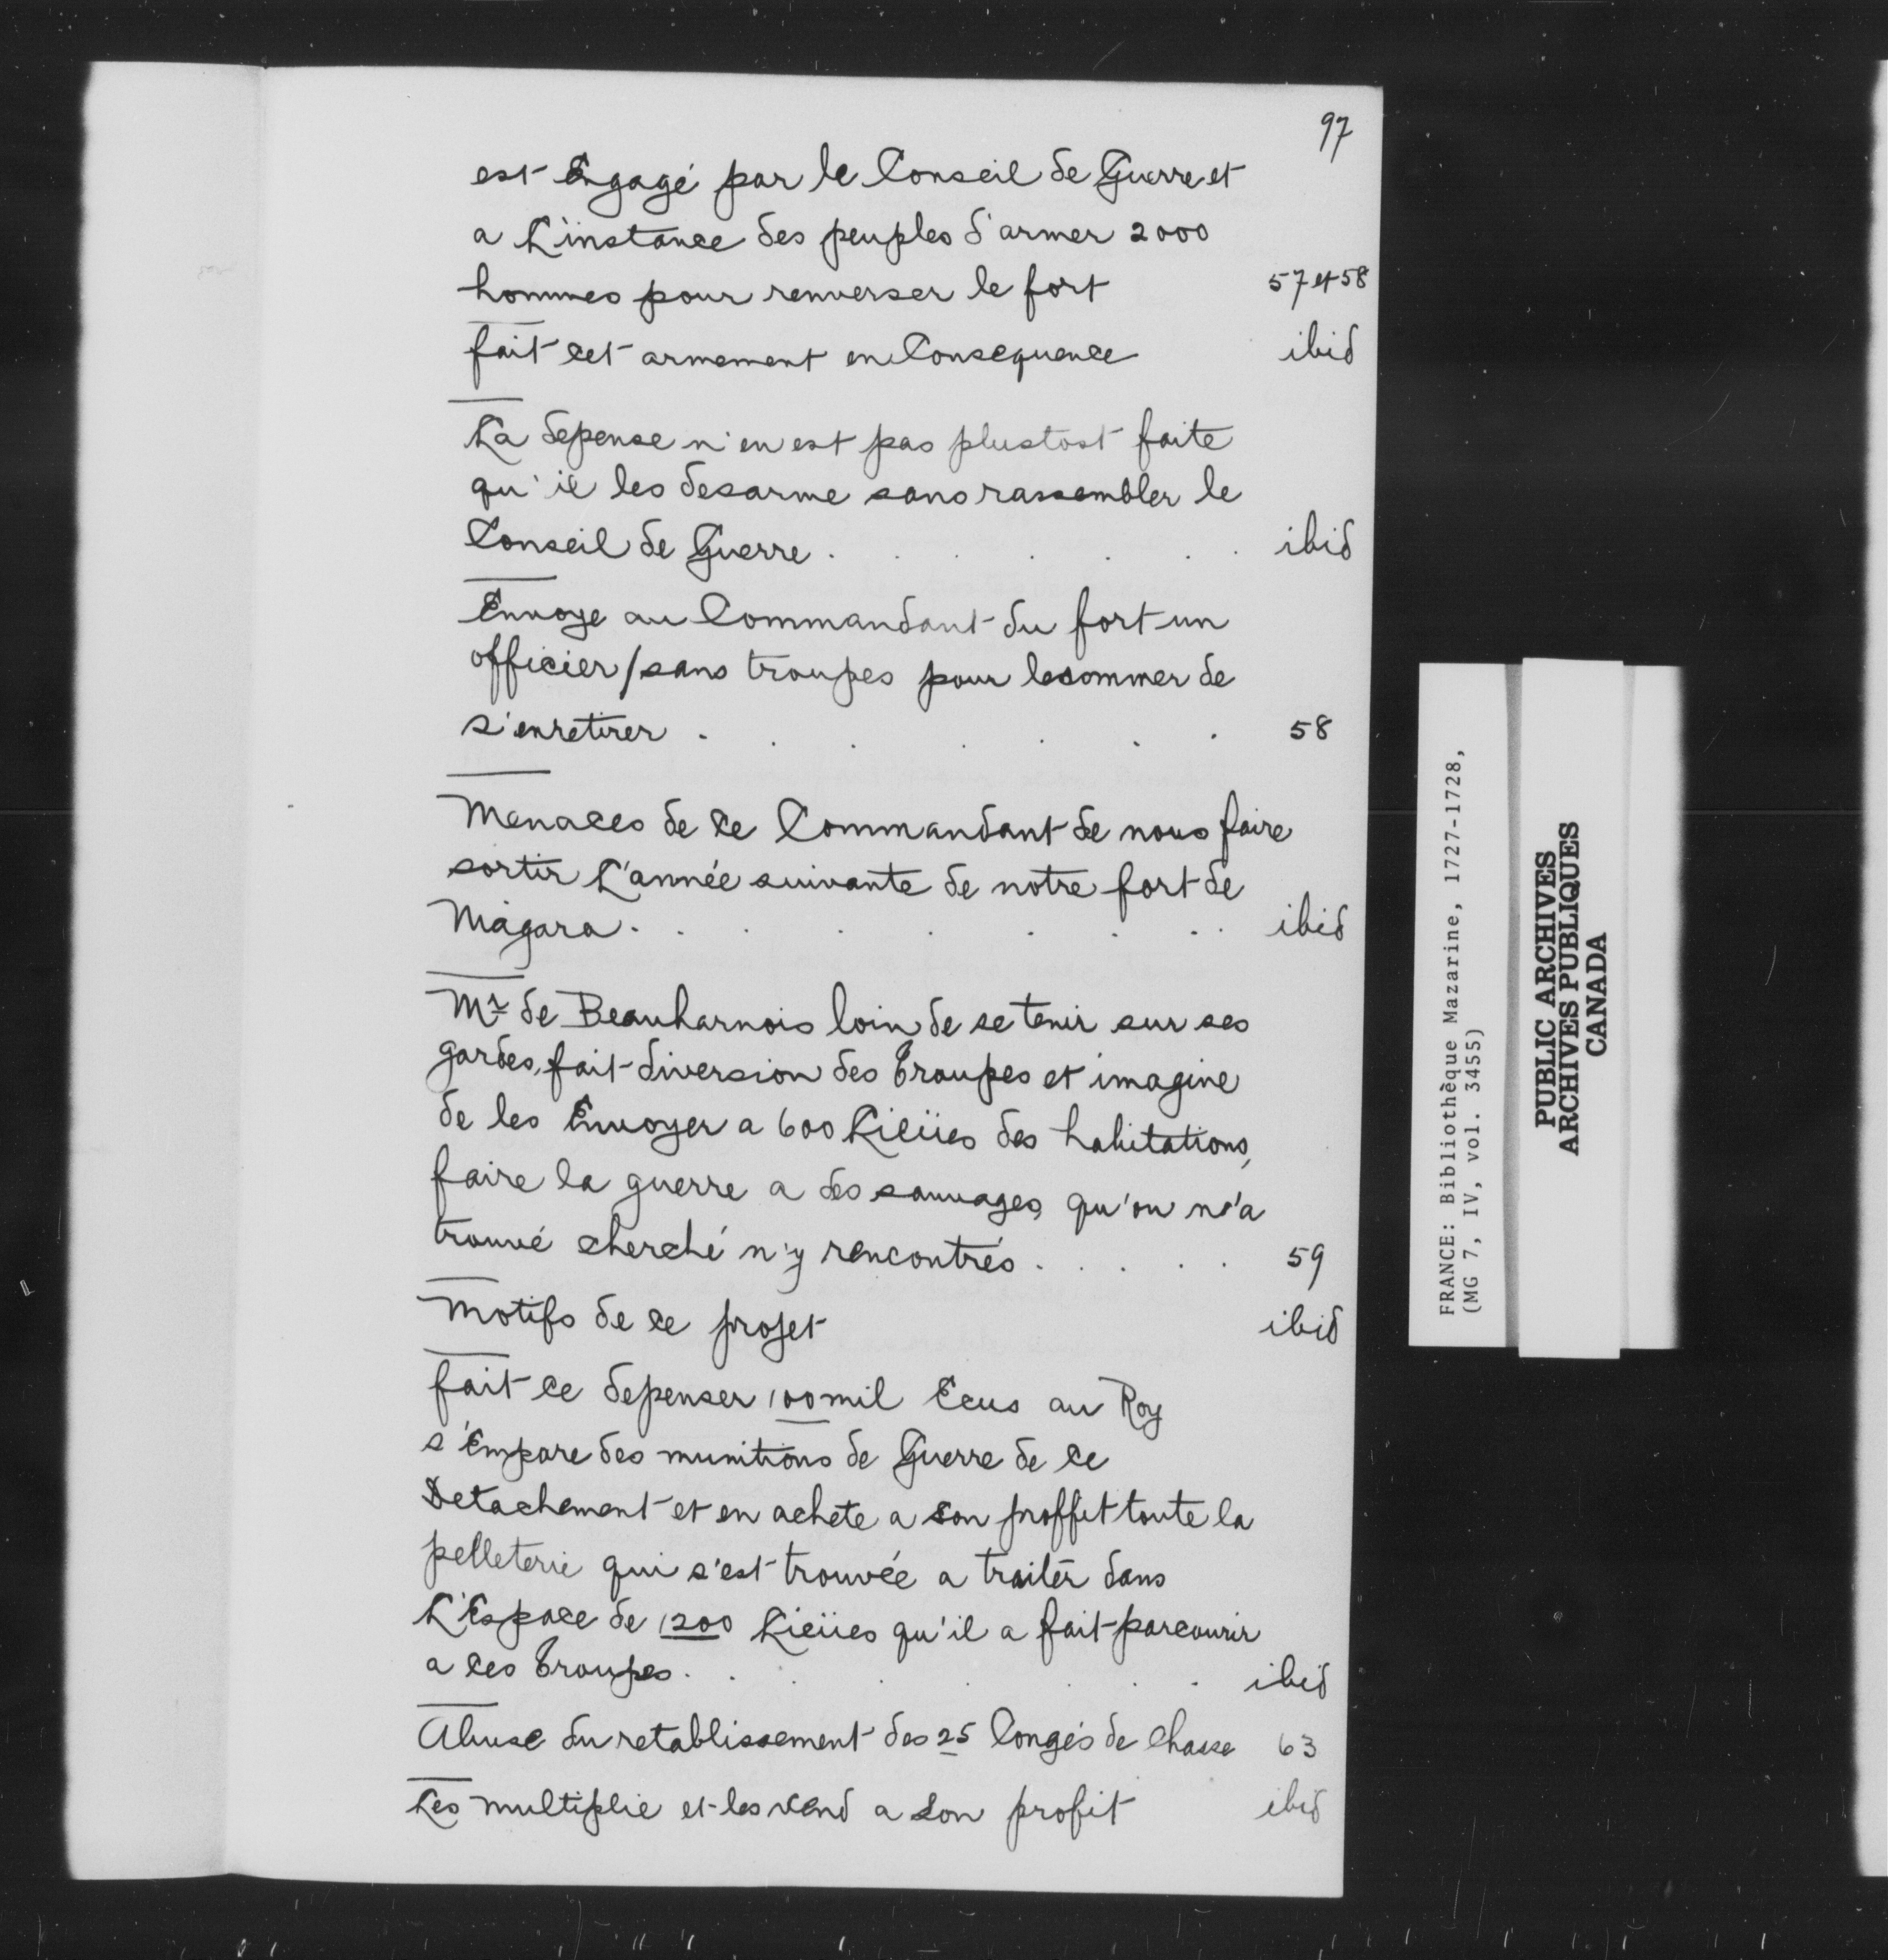 97
est Engagé par le Conseil de Guerre et
a L'instance des peuples d'armer 2000
hommes pour renverser le fort 57 et 58
fait cet armement en Consequence ibid
La depense n'en est pas plustost faite
qu'il les desarme sans rassembler le
Conseil de Guerre . . . . . . ibid
Envoye au Commandant du fort un
officier / sans troupes pour le sommer de
s'en retirer . . . . . . . 58
Menaces de ce Commandant de nous faire
sortir L'année suivante de notre fort de
Niagara . . . . . . . . ibid
Mr de Beauharnois loin de se tenir sur ses
gardes, fait diversion des Troupes et imagine
de les Envoyer a 600 Lieües des habitations,
faire la guerre a des sauvages, qu'on n'a
trouvé cherché n'y rencontrés . . . . . 59
Motifs de ce projet ibid
fait ce depenser 100 mil Ecus au Roy
s'Empare des munitions de Guerre de ce
Detachement et en achete a son proffit toute la
pelleterie qui s'est trouvée a traiter dans
L'Espace de 1200 Lieües qu'il a fait parcourir
a ces Troupes . . . . . . . ibid
Abuse du retablissement des 25 Congés de Chasse 63
Les multiplie et les vend a son profit ibid
FRANCE: Bibliothèque Mazarine, 1727-1728,
(MG 7, IV, vol. 3455)
PUBLIC ARCHIVES
ARCHIVES PUBLIQUES
CANADA